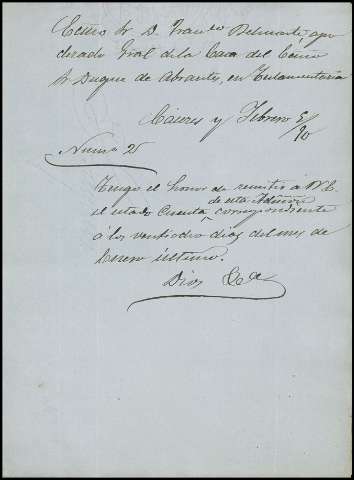 Ecmo Sr D. Franco Belmonte, apo
derado Gral de la Casa del Ecmo
Sr Duque de Abrantes, en Testamentaria
Cáceres y Febrero 5/90
Numo 2
Tengo el honor de remitir á V.E.
de esta Admon
el estado Cuenta correspondiente
á los veintiocho dias del mes de
Enero último.
Dios &a